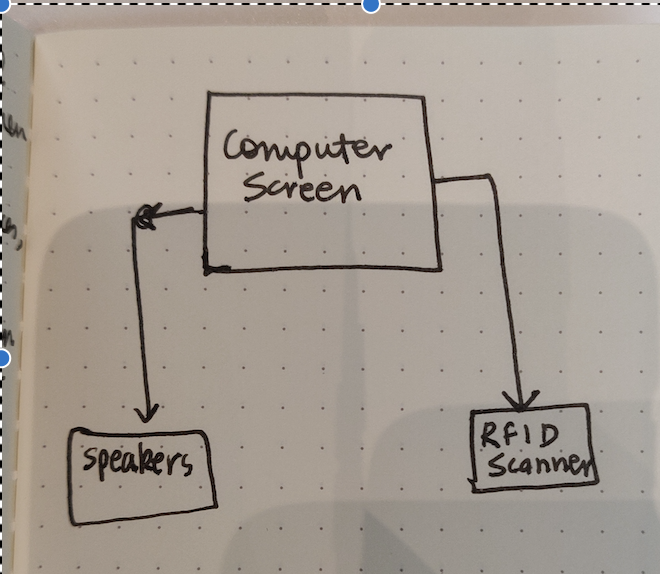 Computer
Screen
Speakers
RFID
Scanner